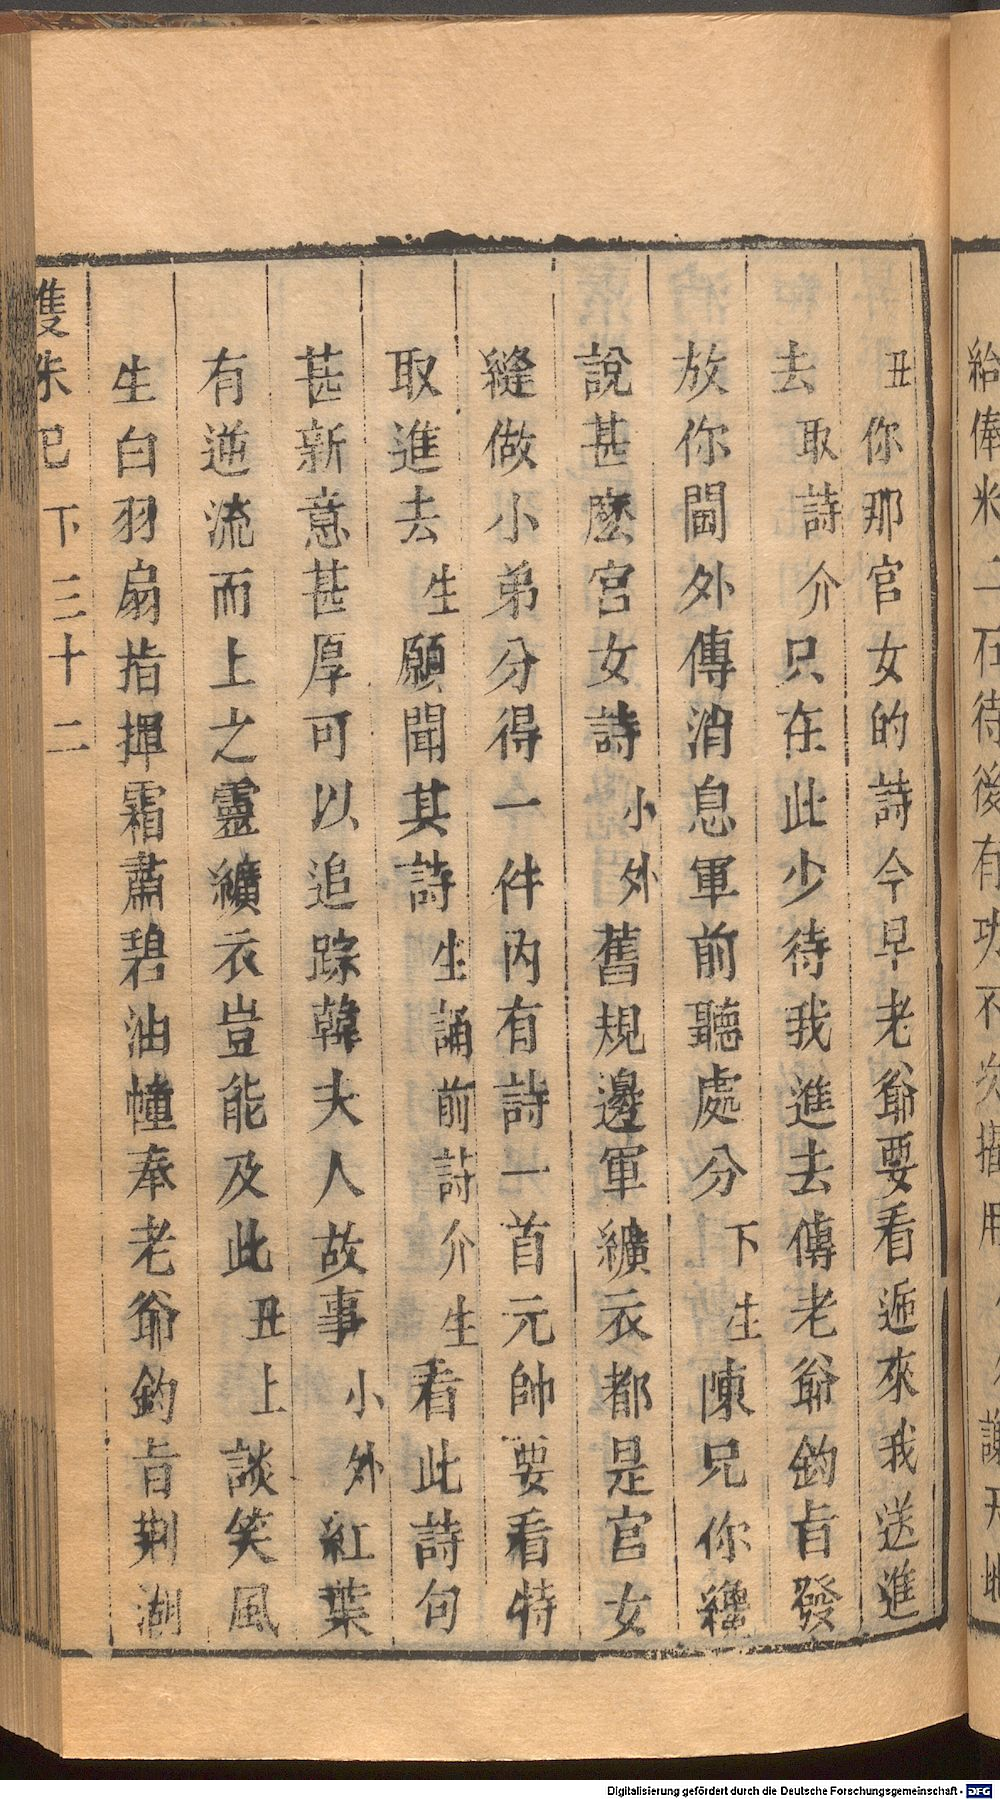 給俸米二石待後有功不次擢用
丑你那官女的詩今早老爺要看遞來我送進
去取詩介只在此少待我進去傳老爺鈞旨發
放你閫外傳消息軍前聽處分下生陳兄你纔
說甚麽宮女詩小外舊規邊軍纊衣都是宮女
縫做小弟分得一件內有詩一首元帥要看特
取進去生願聞其詩生誦前詩介生看此詩句
甚新意甚厚可以追踪韓夫人故事小外紅葉
有逆流而上之靈纊衣豈能及此丑上談笑風
生白羽扇指揮霜肅碧油幢奉老爺鈞旨荆湖
雙珠記 下 三十二
Digitalisierung gefördert durch die Deutsche Forschungsgemeinschaft - DFG